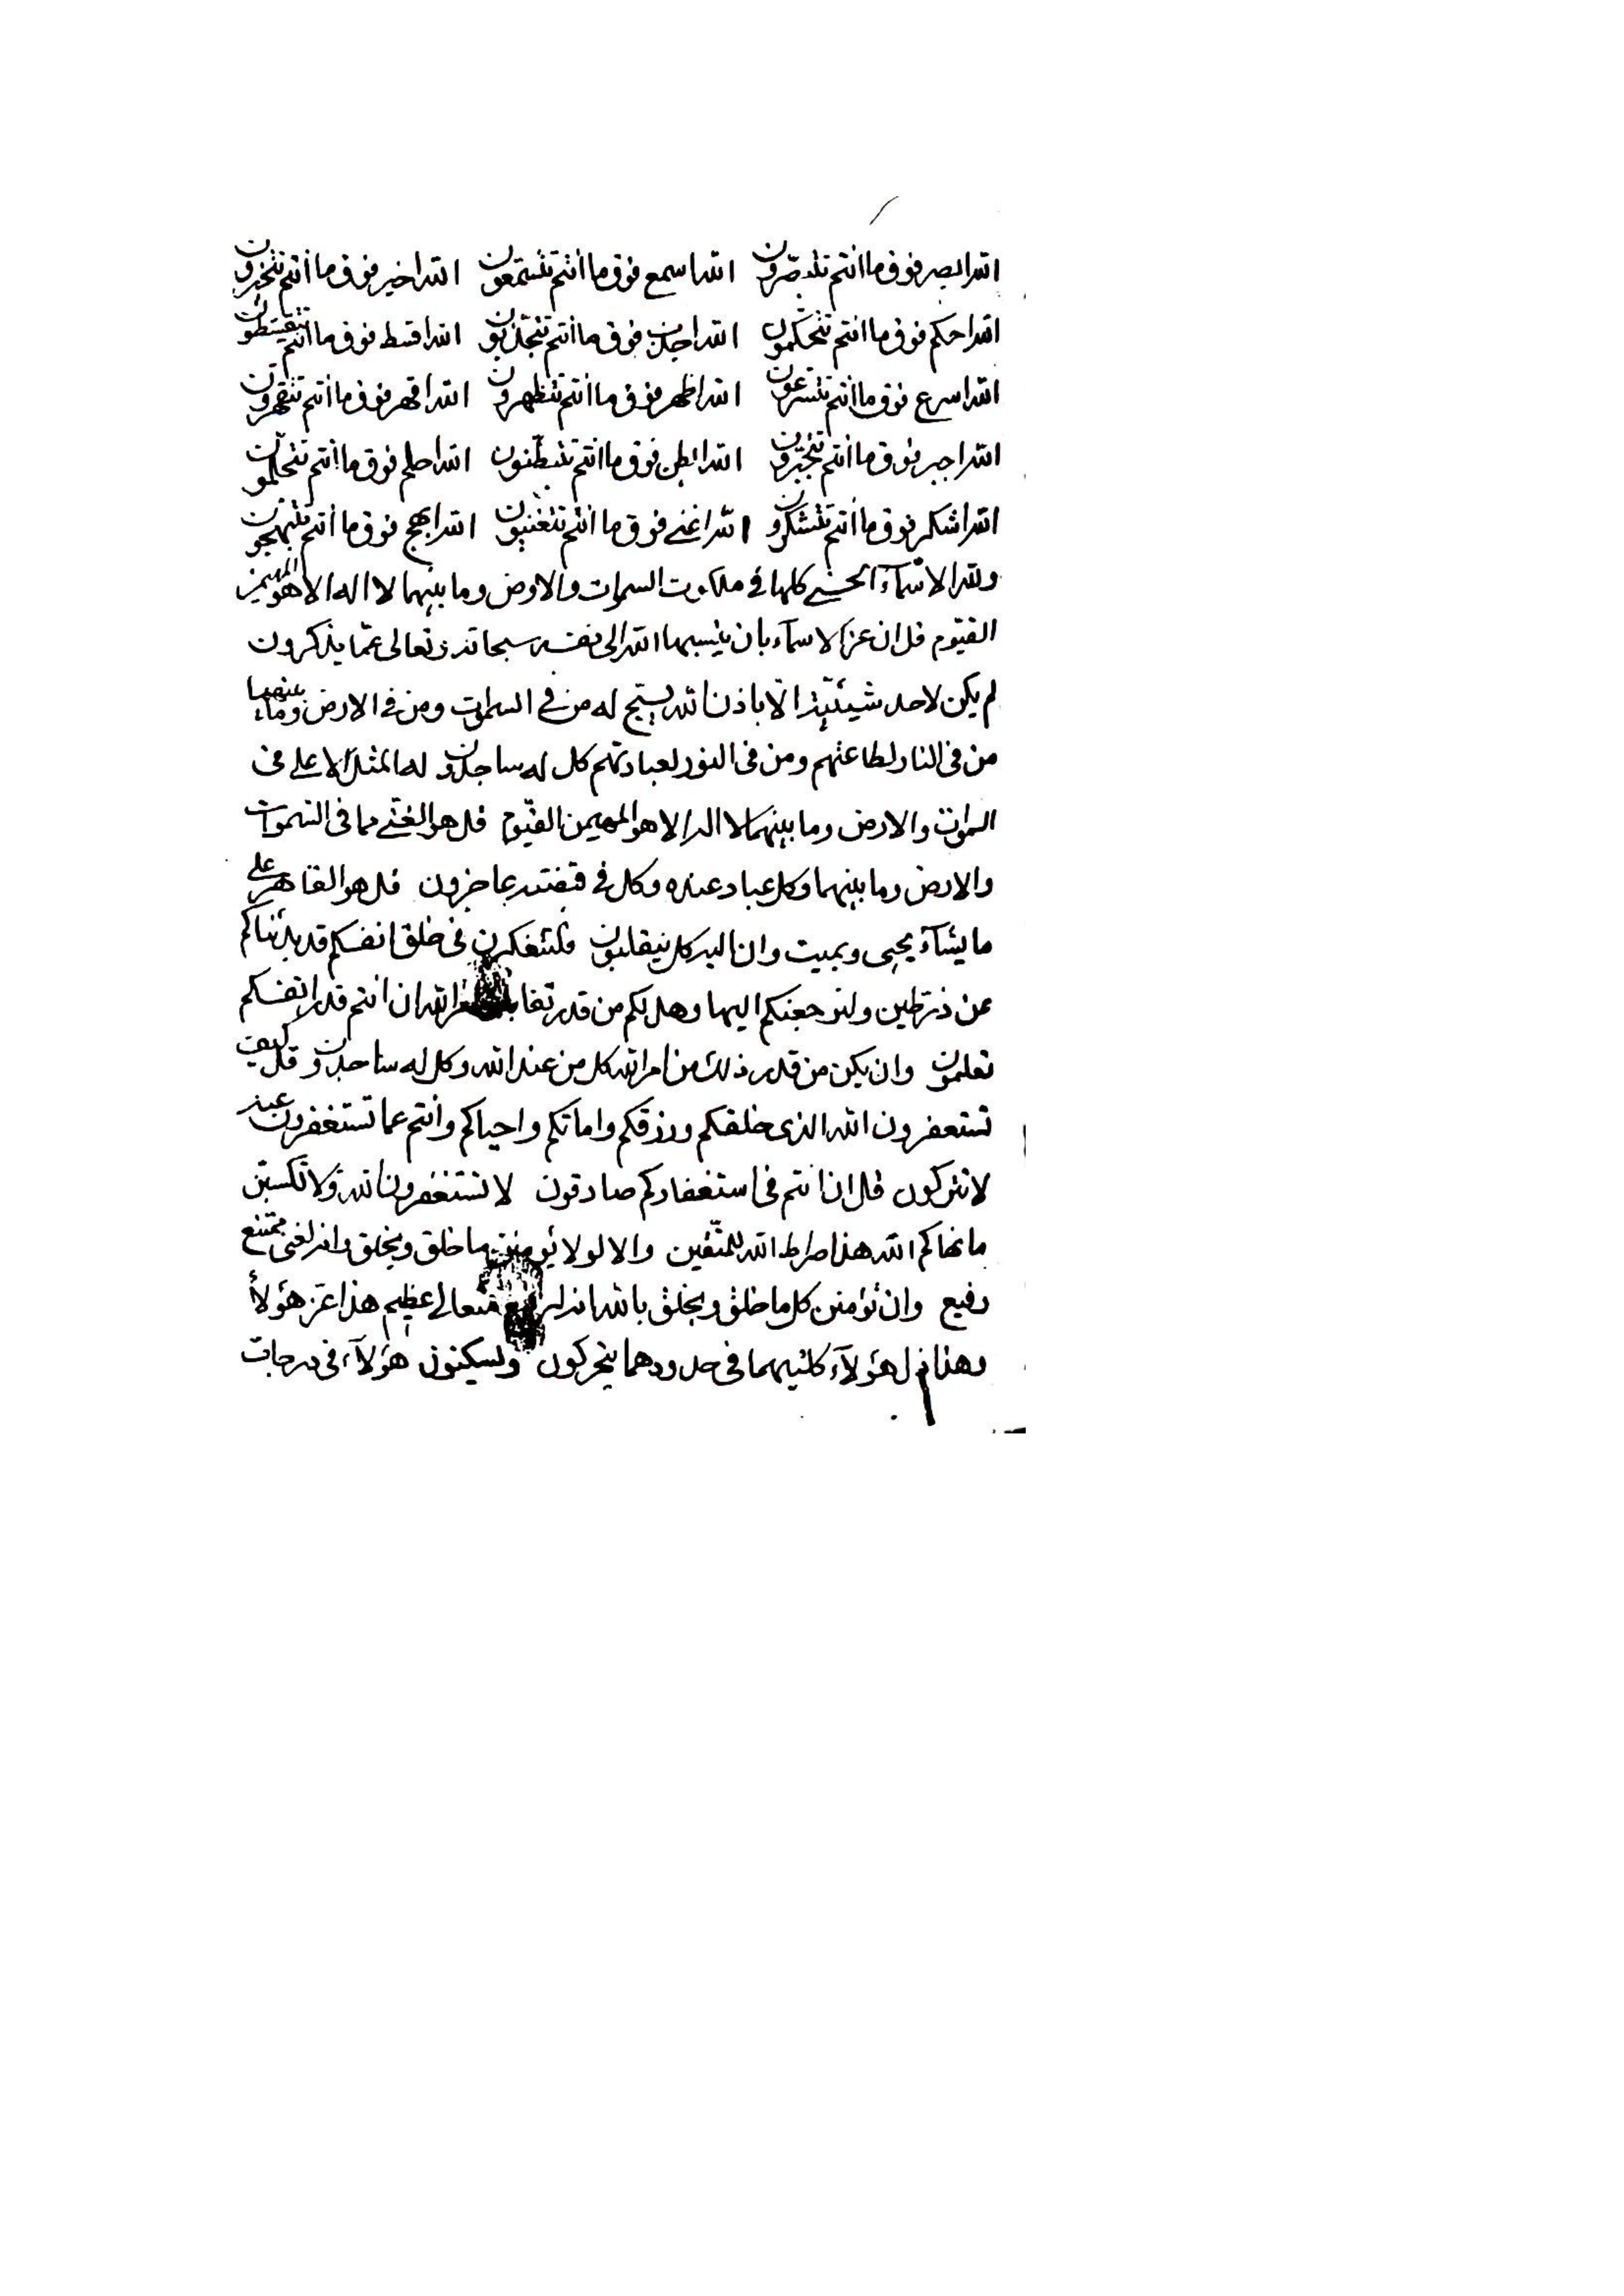 الله ابصر فوق ما انتم تتبصّرون الله اسمع فوق ما انتم تتسمّعون الله اخبر فوق ما انتم تتخبرون
الله احكم فوق ما انتم تتحكمون الله اجذب فوق ما أنتم تتجذّبون الله اقسط فوق ما انتم تتقسّطون
الله اسرع فوق ما أنتم تتسرعون الله اظهر فوق ما أنتم تتظهرون الله اقهر فوق ما أنتم تتقهرون
الله اجبر فوق ما أنتم تتجبّرون الله ابطن فوق ما انتم تتبطّنون الله احلم فوق ما أنتم تتحلّمون
الله اشكر فوق ما أنتم تتشكرون الله اغنى فوق ما انتم تتغنيون الله ابهج فوق ما أنتم تتبهجون
ولله الاسمآء الحسنى كلها فى ملكوت السموات والارض وما بينهما لا اله الا هو المهيمن
القيّوم قل ان عز الاسمآء بان ينسبها الله الى نفسه سبحانه وتعالى عمّا يذكرون
لم يكن لاحد شيئيّة الّا باذن الله يسبّح له من فى السموات ومن فى الارض وما بينهما
من فى النار لطاعتهم ومن فى النور لعبادتهم كل له ساجدون له المثل الاعلى فى
السموات والارض وما بينهما لا اله الا هو المهيمن القيّوم قل هو الغنى عما فى السموات
والارض وما بينهما وكل عباد عنده وكل فى قبضته عاجزون قل هو القاهر على
ما يشآء يحيى ويميت وان اليه كل ينقلبون فلتتفكرن فى خلق انفسكم قد بدئناكم
من ذر طين ولنرجعنكم اليها وهل لكم من قدر الله ان انتم قدر انفسكم
تعلمون وان يكن من قدر ذلك من امر الله كل من عند الله وكل له ساجدون قل كيف
تستغفرون الله الذى خلقكم ورزقكم واماتكم واحياكم وانتم عما تستغفرون عنه
لا تتركون قل ان انتم فى استغفاركم صادقون لا تستغفرون الله ولا تكسبن
ما نهاكم الله هذا صراط الله للمتّقين والا لو لا يؤمنن ما خلق ويخلق وانه لغنى ممتنع
رفيع وان يؤمنن كل ما خلق ويخلق بالله انه متعالى عظيم هذا عزّ هؤلآء
وهذا ذل هؤلآء كلتيهما فى حدودهما يتحركون وليسكنون هؤلآء فى درجات